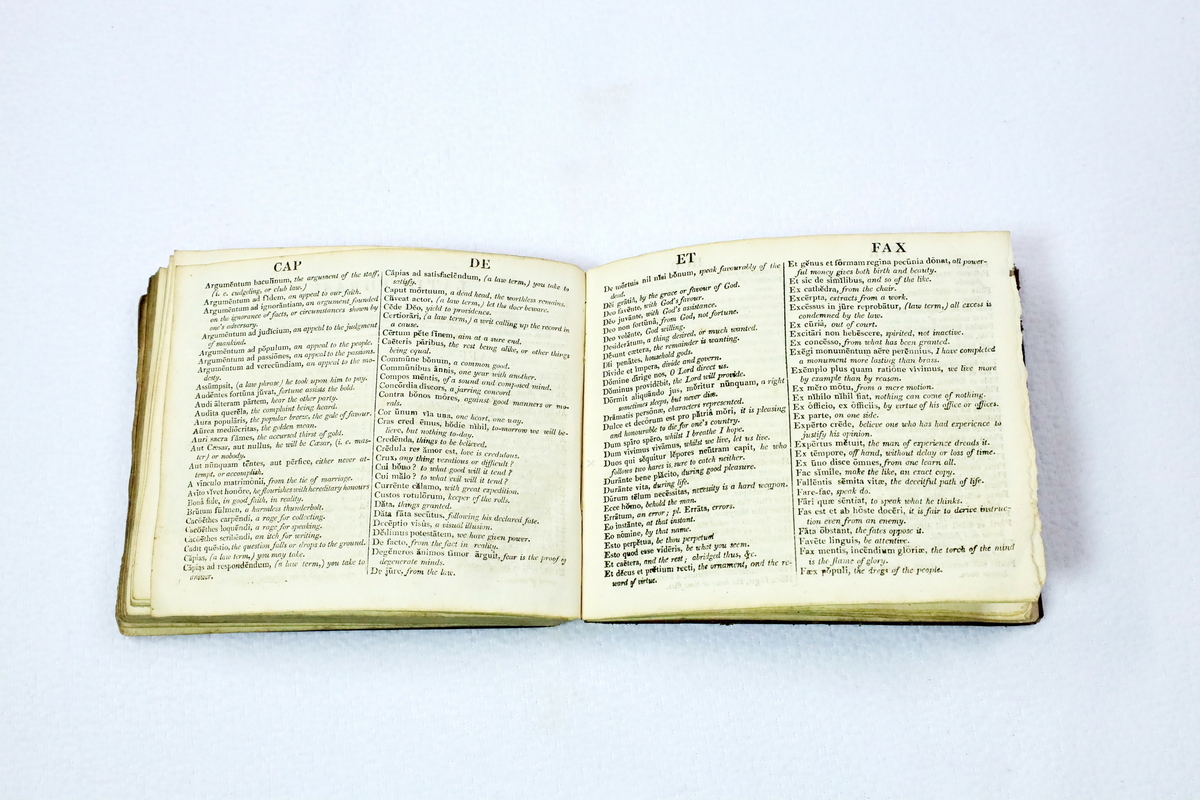 CAP
Argumēntum baculīnum, the argument of the staff,
(i. e. cudgeling, or club law.)
Argumēntum ad fīdem, an appeal to our faith.
Argumēntum ad ignorāntiam, an argument founded
on the ignorance of facts, or circumstances shown by
one's adversary.
Argumēntum ad judīcium, an appeal to the judgment
of mankind.
Argumēntum ad pōpulum, an appeal to the people.
Argumēntum ad passiōnes, an appeal to the passions.
Argumēntum ad verecūndiam, an appeal to the mo-
desty.
Assūmpsit, (a law phrase) he took upon him to pay.
Audēntes fortūna jŭvat, fortune assists the bold.
Audi ālteram pārtem, hear the other party.
Audīta querēla, the complaint being heard.
Aura populāris, the popular breeze, the gale of favour.
Aūrea mediōcritas, the golden mean.
Auri sacra fămes, the accursed thirst of gold.
Aut Cæsar, aut nullus, he will be Cæsar, (i. e. mas-
ter) or nobody.
Aut nūnquam tēntes, aut pērfice, either never at-
tempt, or accomplish.
A vīnculo matrimōnii, from the tie of marriage.
Avīto vīvet honōre, he flourishes with hereditary honours
Bonâ fide, in good faith, in reality.
Brūtum fūlmen, a harmless thunderbolt.
Cacōëthes carpēndi, a rage for collecting.
Cacōëthes loquēndi, a rage for speaking.
Cacōëthes scribēndi, an itch for writing.
Cadit quēstio, the question falls or drops to the ground.
Cāpias, (a law term,) you may take.
Cāpias ad respondēndum, (a law term,) you take to
answer.
DE
Cāpias ad satisfaciēndum, (a law term,) you take to
satisfy.
Caput mōrtuum, a dead head, the worthless remains.
Cāveat actor, (a law term,) let the doer beware.
Cēde Dēo, yield to providence.
Certiorāri, (a law term,) a writ calling up the record in
a cause.
Cērtum pēte fīnem, aim at a sure end.
Caēteris pāribus, the rest being alike, or other things
being equal.
Commūne bōnum, a common good.
Commūnibus ānnis, one year with another.
Compos mēntis, of a sound and composed mind.
Concōrdia discors, a jarring concord
Contra bōnos mōres, against good manners or mo-
rals.
Cor ūnum vīa una, one heart, one way.
Cras cred ēmus, hōdie nīhil, to-morrow we will be-
lieve, but nothing to-day.
Credēnda, things to be believed.
Crēdula res āmor est, love is credulous.
Crux, any thing vexatious or difficult?
Cui bōno? to what good will it tend?
Cui mālo? to what evil will it tend?
Currēnte cālamo, with great expedition.
Custos rotulōrum, keeper of the rolls.
Dāta, things granted.
Dāta fāta secūtus, following his declared fate.
Decēptio visûs, a visual illusion.
Dēdimus potestātem, we have given power.
De facto, from the fact in reality.
Degēneres ānimos tīmor ārguit, fear is the proof of
degenerate minds.
De jūre, from the law.
ET
De mōrtuis nil nīsi bōnum, speak favourably of the
dead.
Dēi grātiā, by the grace or favour of God.
Deo favēnte, with God's favour.
Dēo juvānte, with God's assistance.
Deo non fortūnâ, from God, not fortune.
Dēo volēnte, God willing.
Desiderātum, a thing desired, or much wanted.
Dēsunt cætera, the remainder is wanting.
Dīi penātes, household gods.
Dīvide et īmpera, divide and govern.
Dōmine dirige nos, O Lord direct us.
Dōminus providēbit, the Lord will provide.
Dōrmit aliquāndo jus, mōritur nūnquam, a right
sometimes sleeps, but never dies.
Drāmatis persōnæ, characters represented.
Dulce et decōrum est pro pātriâ mōri, it is pleasing
and honourable to die for one's country.
Dum spīro spēro, whilst I breathe I hope.
Dum vīvimus vivāmus, whilst we live, let us live.
Duos qui sēquitur lēpores neūtram capit, he who
follows two hares is sure to catch neither.
Durānte bene plācito, during good pleasure.
Durānte vita, during life.
Dūrum tēlum necēssitas, necessity is a hard weapon.
Ecce hōmo, behold the man.
Errātum, an error; pl. Errāta, errors.
Eo instānte, at that instant.
Eo nōmine, by that name.
Esto perpētua, be thou perpetual
Esto quod esse vidēris, be what you seem.
Et caētera, and the rest, abridged thus, &c.
Et dēcus et prētium recti, the ornament, and the re-
ward of virtue.
FAX
Et gēnus et fōrmam regina pecūnia dōnat, all power-
ful money gives both birth and beauty.
Et sic de simīlibus, and so of the like.
Ex cathēdra, from the chair.
Excērpta, extracts from a work.
Excēssus in jūre reprobātur, (law term,) all excess is
condemned by the law.
Ex cūriâ, out of court.
Excitāri non hebēscere, spirited, not inactive.
Ex concēsso, from what has been granted.
Exēgi monumēntum aēre perēnnius, I have completed
a monument more lasting than brass.
Exēmplo plus quam ratione vīvimus, we live more
by example than by reason.
Ex mēro mōtu, from a mere motion.
Ex nīhilo nīhil fiat, nothing can come of nothing.
Ex ōfficio, ex ōfficiis, by virtue of his office or offices.
Ex parte, on one side.
Expērto crēde, believe one who has had experience to
justify his opinion.
Expērtus mētuit, the man of experience dreads it.
Ex tēmpore, off hand, without delay or loss of time.
Ex ūno disce ōmnes, from one learn all.
Fac sīmile, make the like, an exact copy.
Fallēntis sēmita vitæ, the deceitful path of life.
Fare-fac, speak do.
Fāri quæ sēntiat, to speak what he thinks.
Fas est et ab hōste docēri, it is fair to derive instruc-
tion even from an enemy.
Fāta ōbstant, the fates oppose it.
Favēte linguis, be attentive.
Fax mentis, incēndium glōriæ, the torch of the mind
is the flame of glory.
Fæx pōpuli, the dregs of the people.